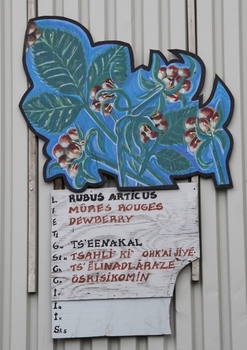 L. RUBUS ARTICUS
F. MÛRES ROUGES
E. DEWBERRY
T.
G. TS'EENAKAL
S. TSAHLI KI' OHK'AI JIYÉ
C. TS'ËLINADLÁRAZE
C. ÔSKISIKOMIN
I.
I.
I.
S.